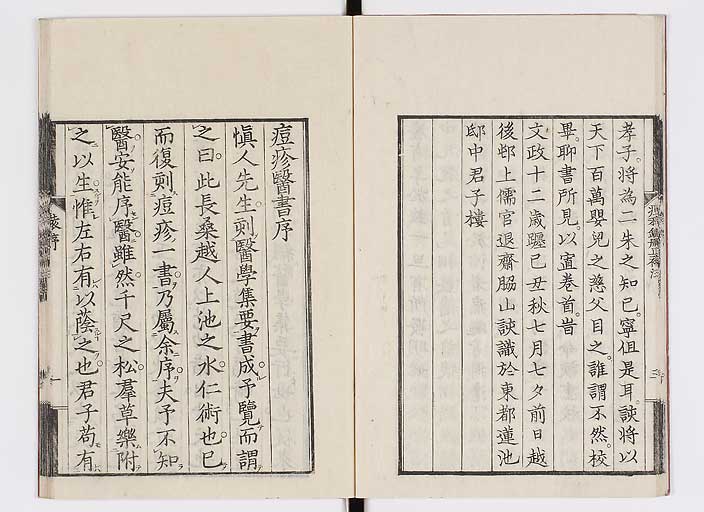 孝子。將為二朱之知已。寧但是耳。誤將以
天下百萬嬰兒之慈父目之。誰謂不然。校
畢。聊書所見。以寘卷首。旹
文政十二歲躔已丑秋七月七夕前日越
後邨上儒官退齋脇山誤識於東都蓮池
邸中君子樓
痘疹醫書序
愼人先生。刻醫學集要書成。予覽而謂
之曰。此長桑越人上池之水。仁術也。已
而復刻痘疹一書。乃屬余序。夫予不知
醫。安能序醫。雖然千尺之松。羣草樂附
之以生。惟左右有以蔭之也。君子苟有